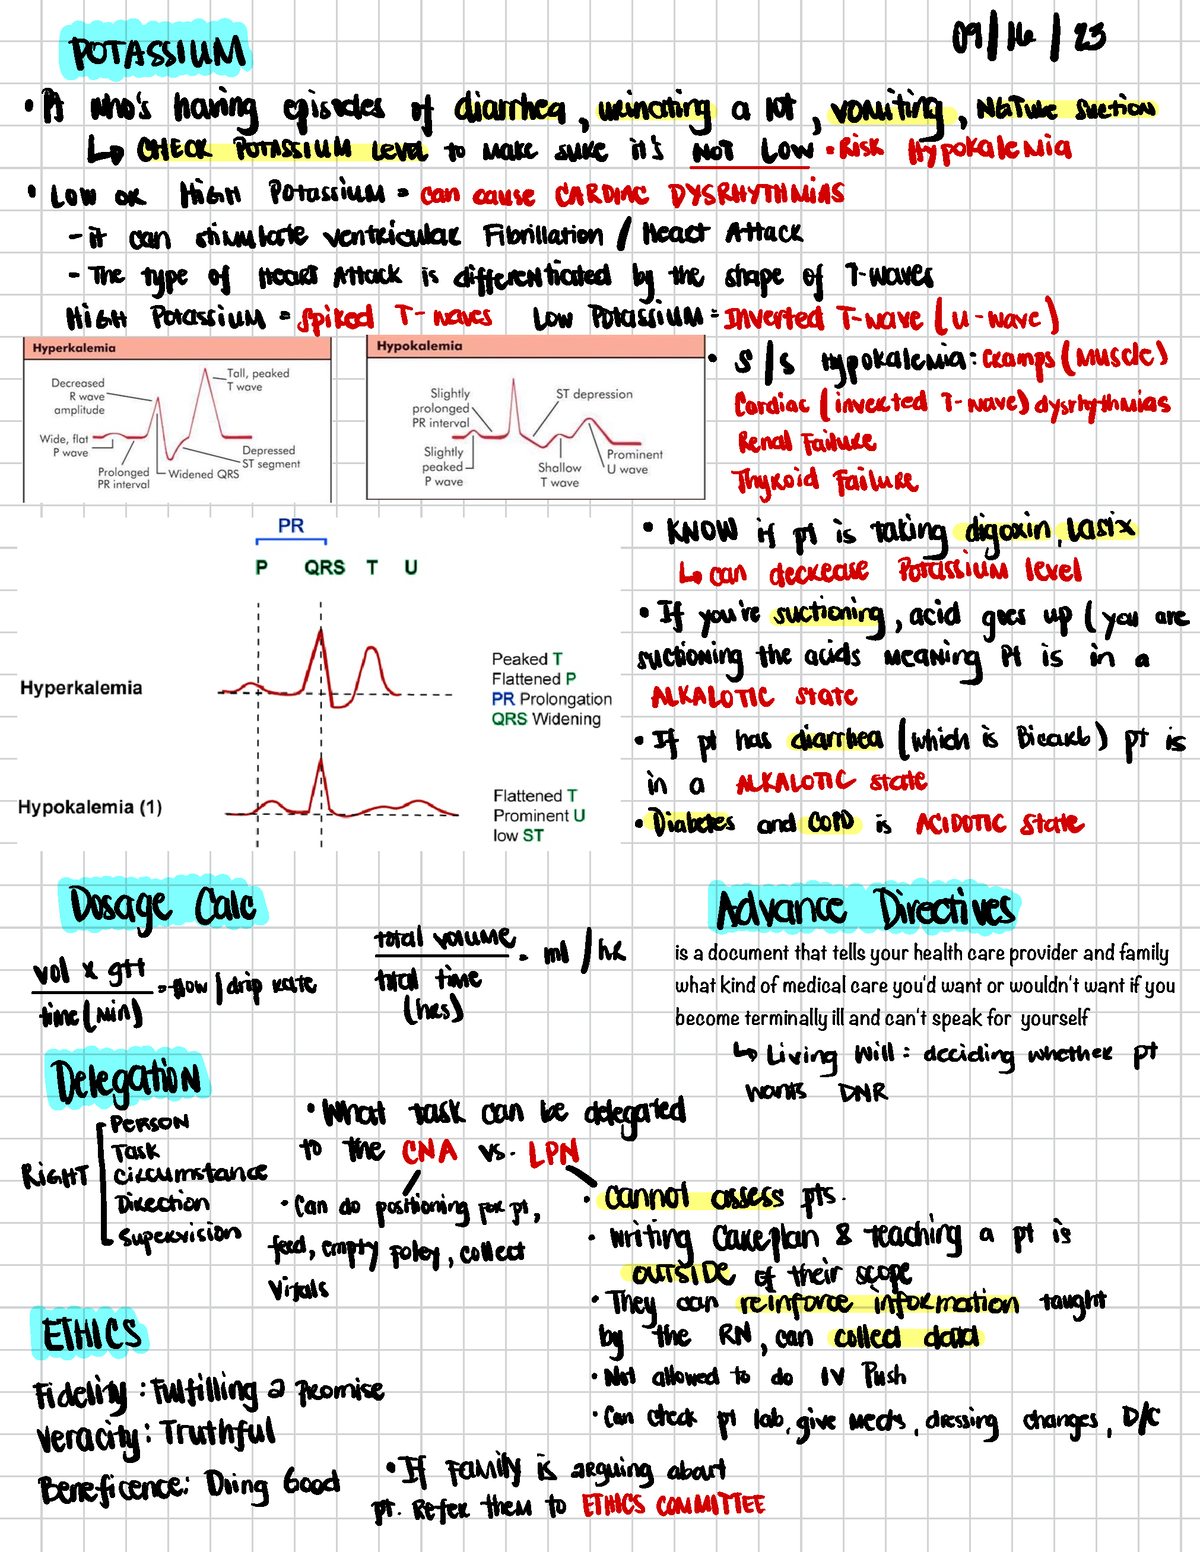 POTASSIUM
09/16/23
• Pt who's having episodes of diarrhea, urinating a lot, vomiting, NGTube Suction
↳ CHECK POTASSIUM Level to make sure it's NOT LOW • Risk Hypokalemia
• LOW or HIGH Potassium = can cause CARDIAC DYSRHYTHMIAS
- it can stimulate ventricular Fibrillation / Heart Attack
- The type of Heart Attack is differentiated by the shape of T-waves
HIGH Potassium = Spiked T-waves Low Potassium = Inverted T-wave (u-wave)
Hyperkalemia
Decreased
R wave
amplitude
Tall, peaked
T wave
Wide, flat
P wave
Prolonged
PR interval
Widened QRS
Depressed
ST segment
Hypokalemia
Slightly
prolonged
PR interval
ST depression
Slightly
peaked
P wave
Shallow
T wave
Prominent
U wave
• S/S Hypokalemia: Cramps (Muscle)
Cardiac (inverted T-wave) dysrhythmias
Renal Failure
Thyroid Failure
PR
P QRS T U
Hyperkalemia
Peaked T
Flattened P
PR Prolongation
QRS Widening
Hypokalemia (1)
Flattened T
Prominent U
low ST
• KNOW if pt is taking digoxin, Lasix
↳ can decrease Potassium level
• If you're suctioning, acid goes up (you are
suctioning the acids meaning Pt is in a
ALKALOTIC state
• If pt has diarrhea (which is Bicarb) pt is
in a ALKALOTIC state
• Diabetes and COPD is ACIDOTIC state
Dosage Calc
vol x gtt
time (min)
= flow / drip rate
total volume
total time
(hrs)
= ml / hr
Advance Directives
is a document that tells your health care provider and family
what kind of medical care you'd want or wouldn't want if you
become terminally ill and can't speak for yourself
↳ Living Will : deciding whether pt
wants DNR
Delegation
RIGHT
PERSON
Task
Circumstance
Direction
Supervision
• What task can be delegated
to the CNA vs. LPN
• Can do positioning for pt,
feed, empty foley, collect
Vitals
• cannot assess pts.
• Writing Careplan & teaching a pt is
OUTSIDE of their scope
• They can reinforce information taught
by the RN, can collect data
• Not allowed to do IV Push
• Can check pt lab, give meds, dressing changes, D/C
ETHICS
Fidelity : Fulfilling a Promise
Veracity : Truthful
Beneficence: Doing Good
• If Family is arguing about
pt. Refer them to ETHICS COMMITTEE